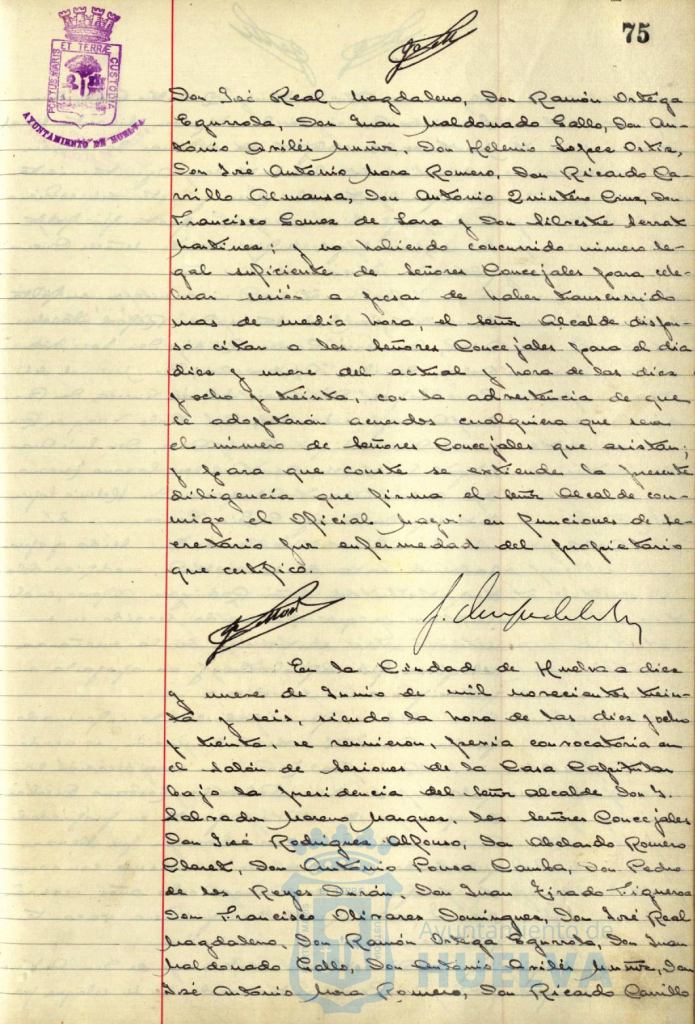 75
PORTUS MARIS ET TERRAE CUSTODIA
AYUNTAMIENTO DE HUELVA
Don José Real Magdaleno, Don Ramón Ortega
Egurrola, Don Juan Maldonado Gallo, Don An-
tonio Avilés Muñoz, Don Helenio Lopez Ortiz,
Don José Antonio Mora Romero, Don Ricardo Ca-
rrillo Almansa, Don Antonio Quintero Cruz, Don
Francisco Gomez de Lara y Don Silvestre Serrat
Martinez; y no habiendo concurrido número le-
gal suficiente de Señores Concejales para cele-
brar sesión a pesar de haber transcurrido
mas de media hora, el Señor Alcalde dispu-
so citar a los Señores Concejales para el dia
diez y nueve del actual y hora de las diez
y ocho y treinta, con la advertencia de que
se adoptarán acuerdos cualquiera que sea
el número de Señores Concejales que asistan;
y para que conste se extiende la presente
diligencia que firma el Señor Alcalde con-
migo el Oficial Mayor en funciones de Se-
cretario por enfermedad del propietario
que certifico.
En la Ciudad de Huelva a diez
y nueve de Junio de mil novecientos trein-
ta y seis, siendo la hora de las diez y ocho
y treinta, se reunieron, previa convocatoria en
el Salón de Sesiones de la Casa Capitular
bajo la presidencia del Señor Alcalde Don
Salvador Moreno Marquez, los Señores Concejales
Don José Rodriguez Alfonso, Don Abelardo Romero
Claret, Don Antonio Pousa Camba, Don Pedro
de los Reyes Durán, Don Juan Tirado Figueroa
Don Francisco Olivares Dominguez, Don José Real
Magdaleno, Don Ramón Ortega Egurrola, Don Juan
Maldonado Gallo, Don Antonio Avilés Muñoz, Don
José Antonio Mora Romero, Don Ricardo Carrillo
Ayuntamiento de
HUELVA